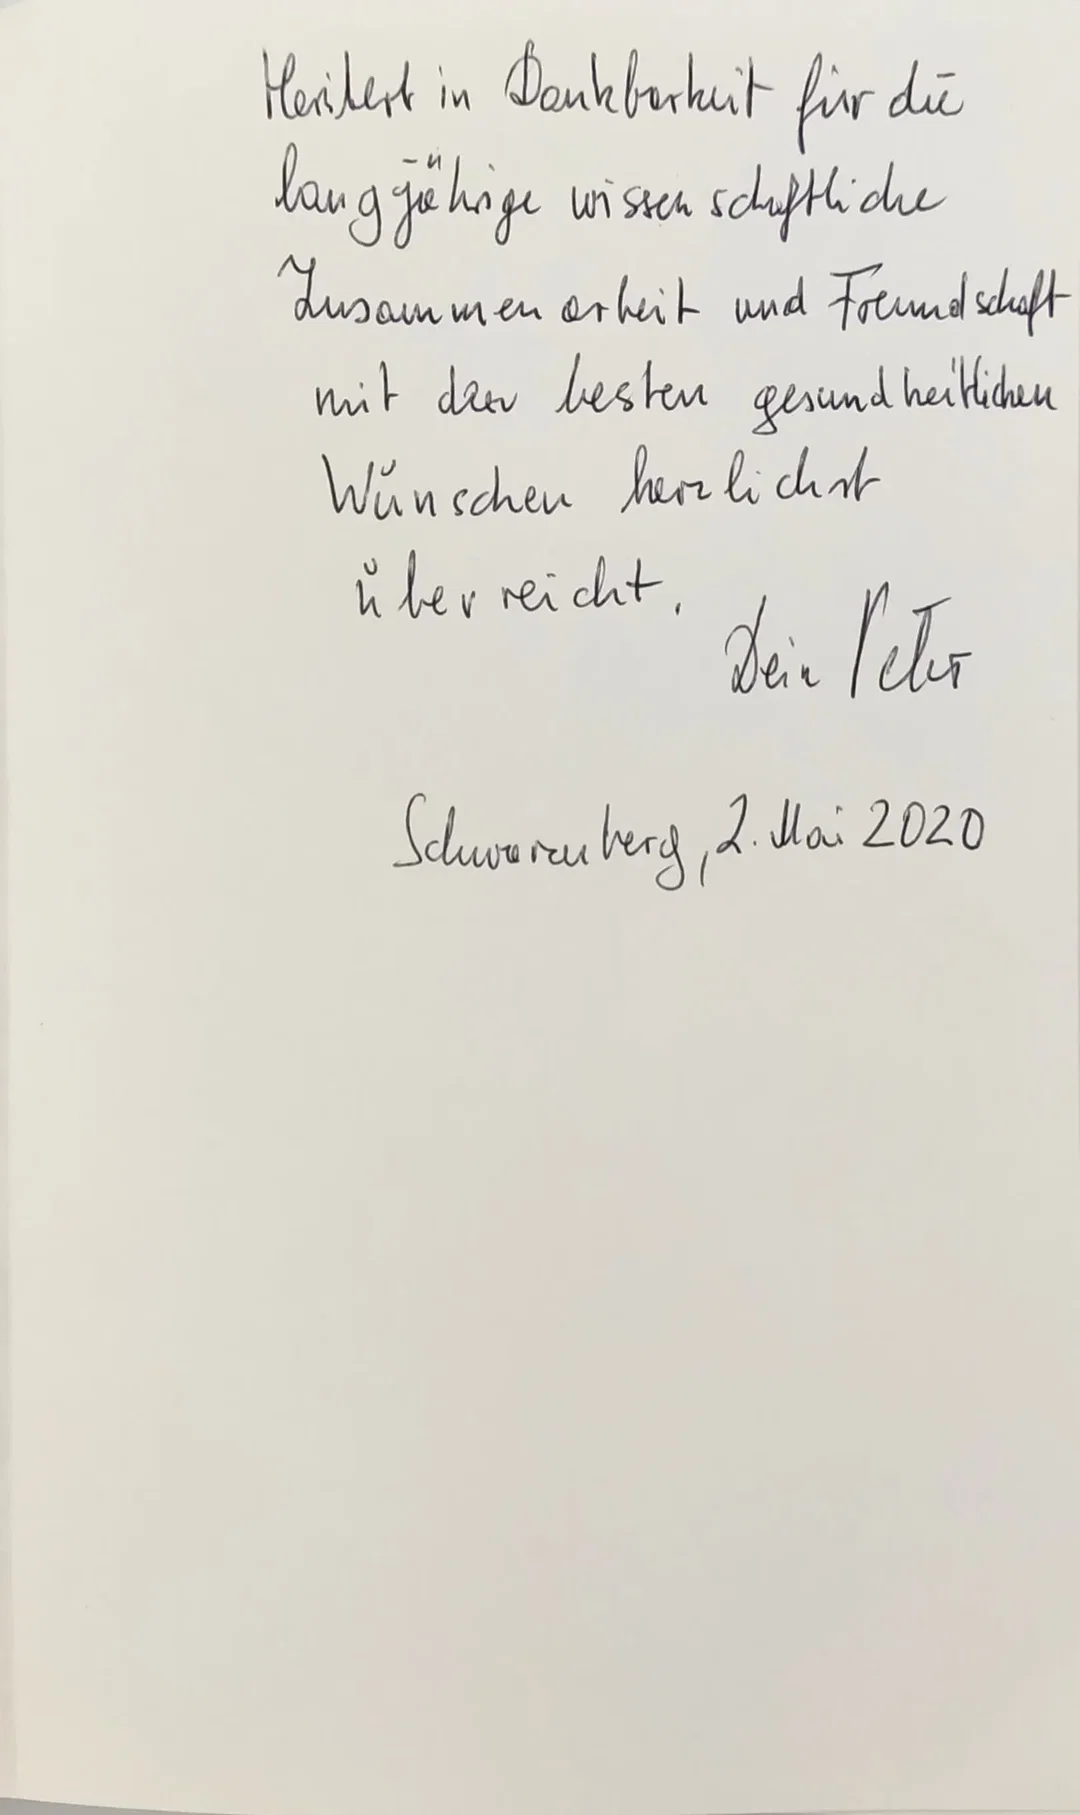 Heribert in Dankbarkeit für die
langjährige wissenschaftliche
Zusammenarbeit und Freundschaft
mit den besten gesundheitlichen
Wünschen herzlichst
überreicht.
Dein Peter
Schwarzenberg, 2. Mai 2020